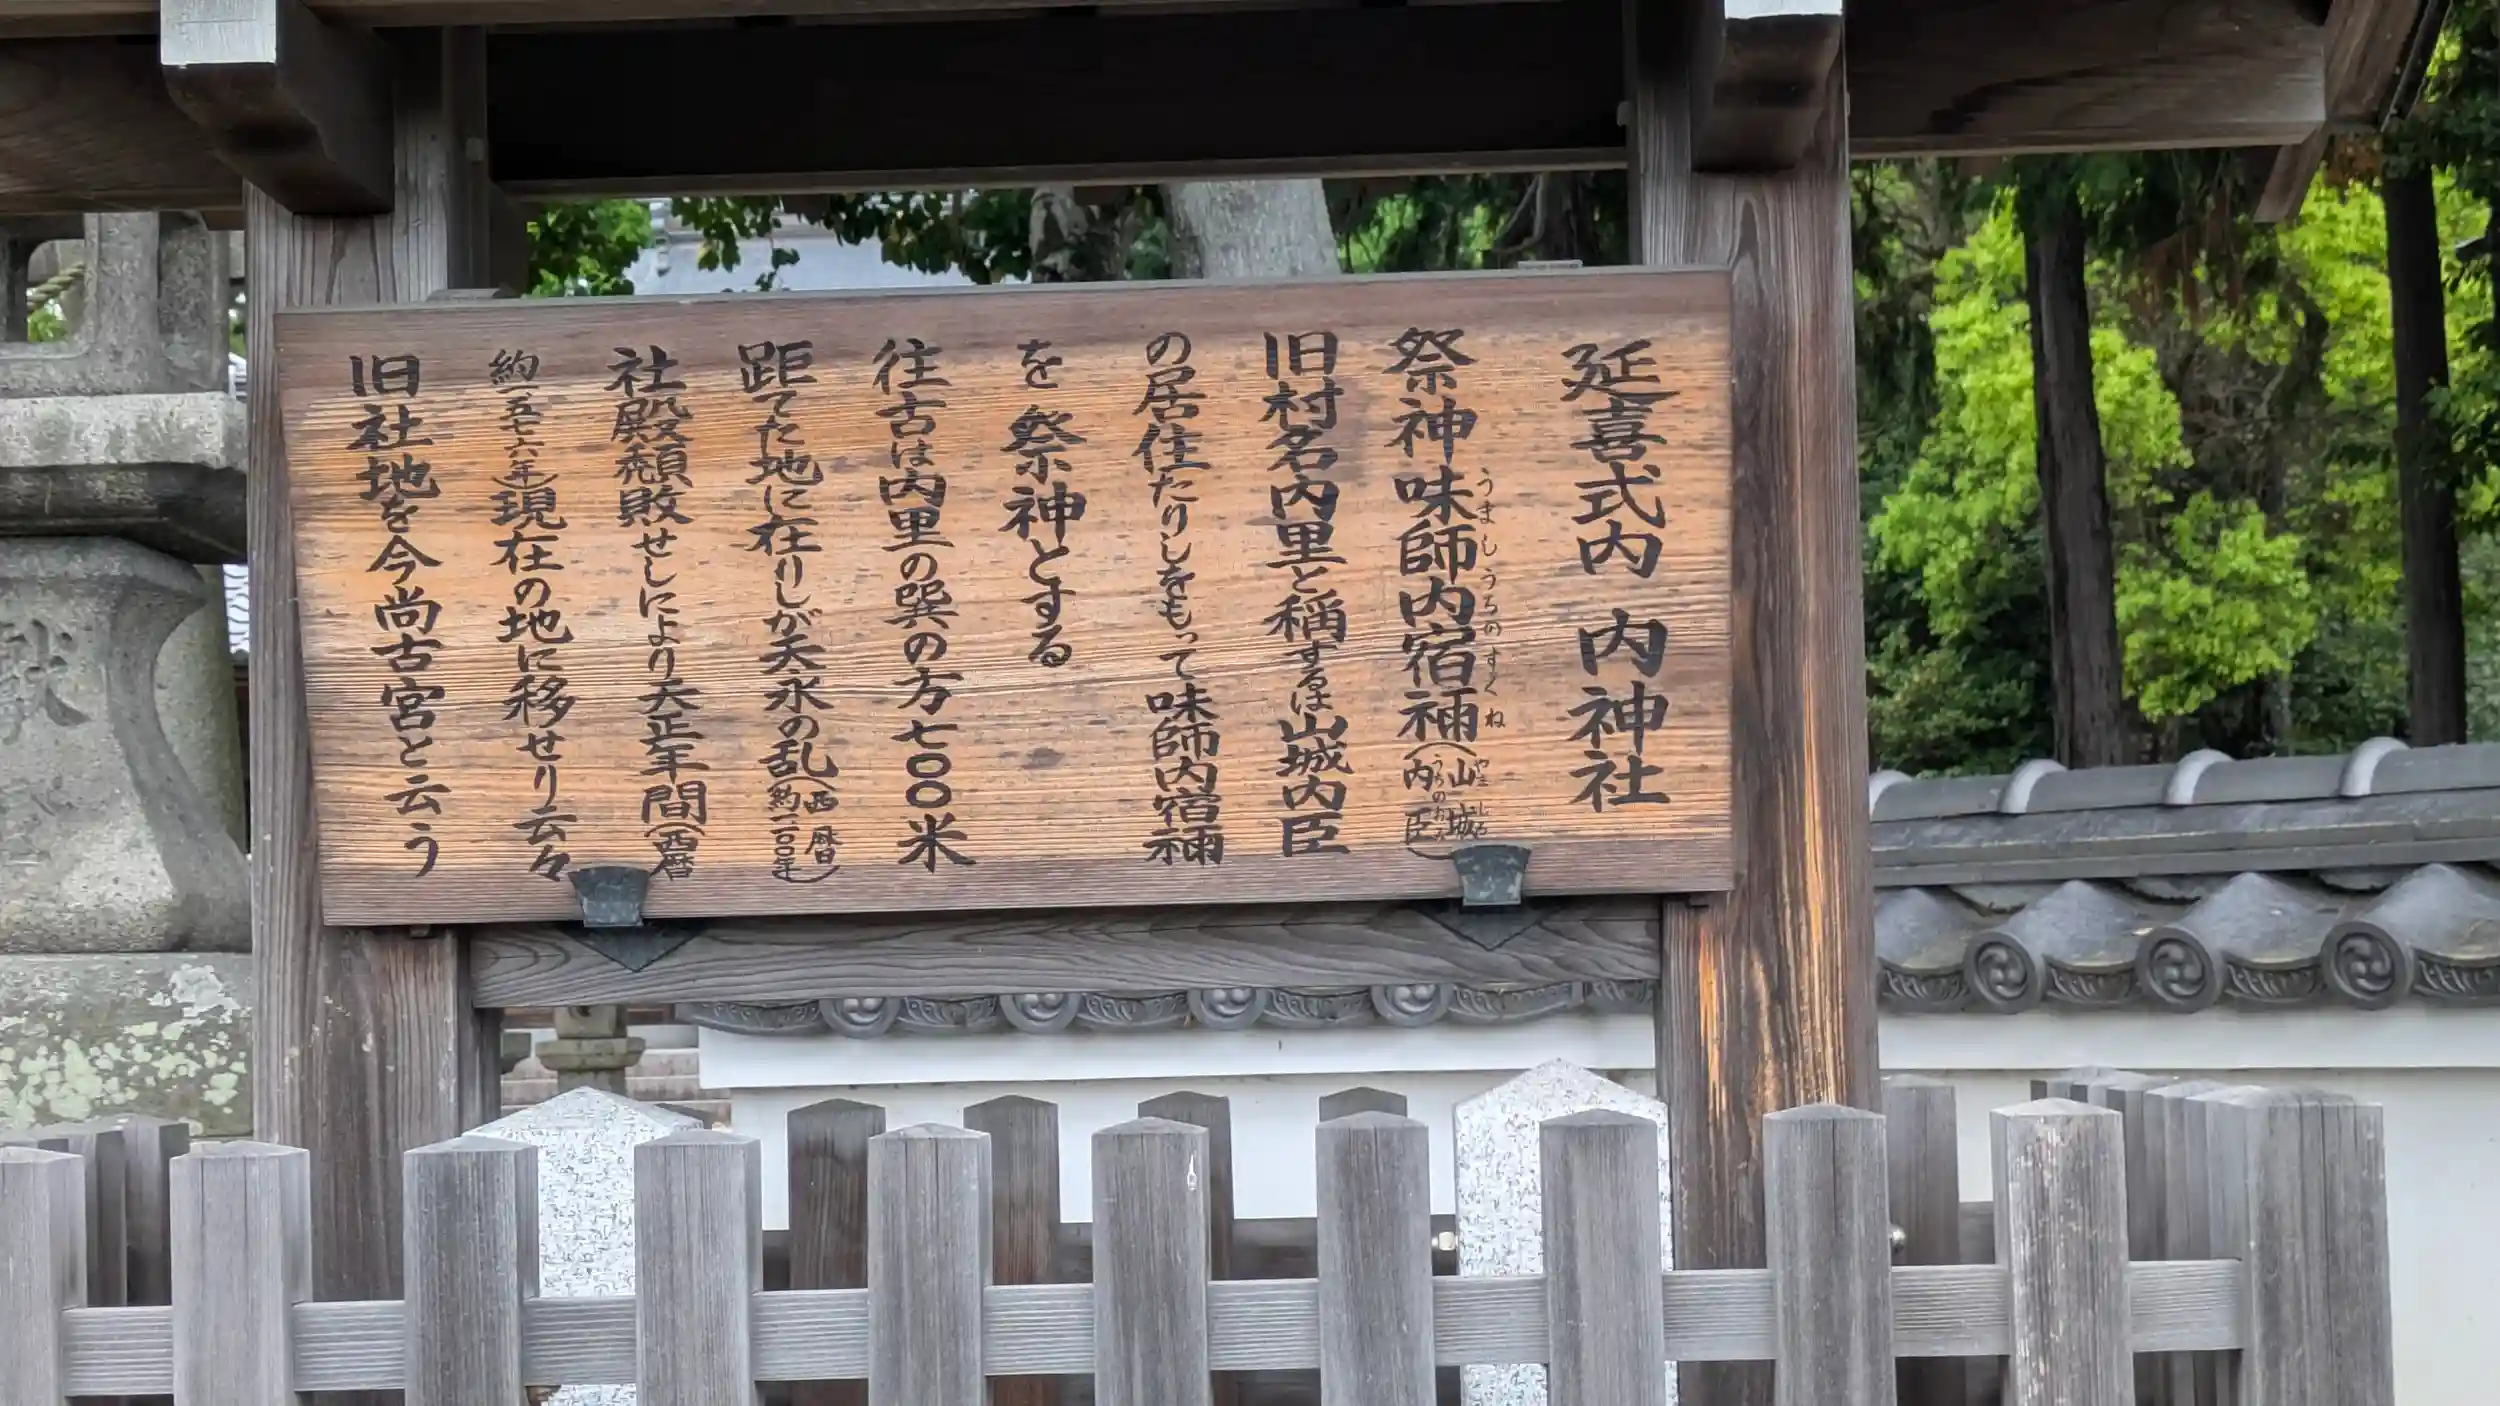 延喜式内 内神社
祭神味師内宿禰(山城内臣)
うましうちのすくね
やましろ
うちのおみ
旧村名内里と稱するは山城内臣
の居住たりしをもって味師内宿禰
を祭神とする
往古は内里の巽の方七〇〇米
距てた地に在りしが天永の乱(西暦約一一〇〇年)
社殿頽敗せしにより天正年間(西暦
約一五七六年)現在の地に移せり云々
旧社地を今尚古宮と云う